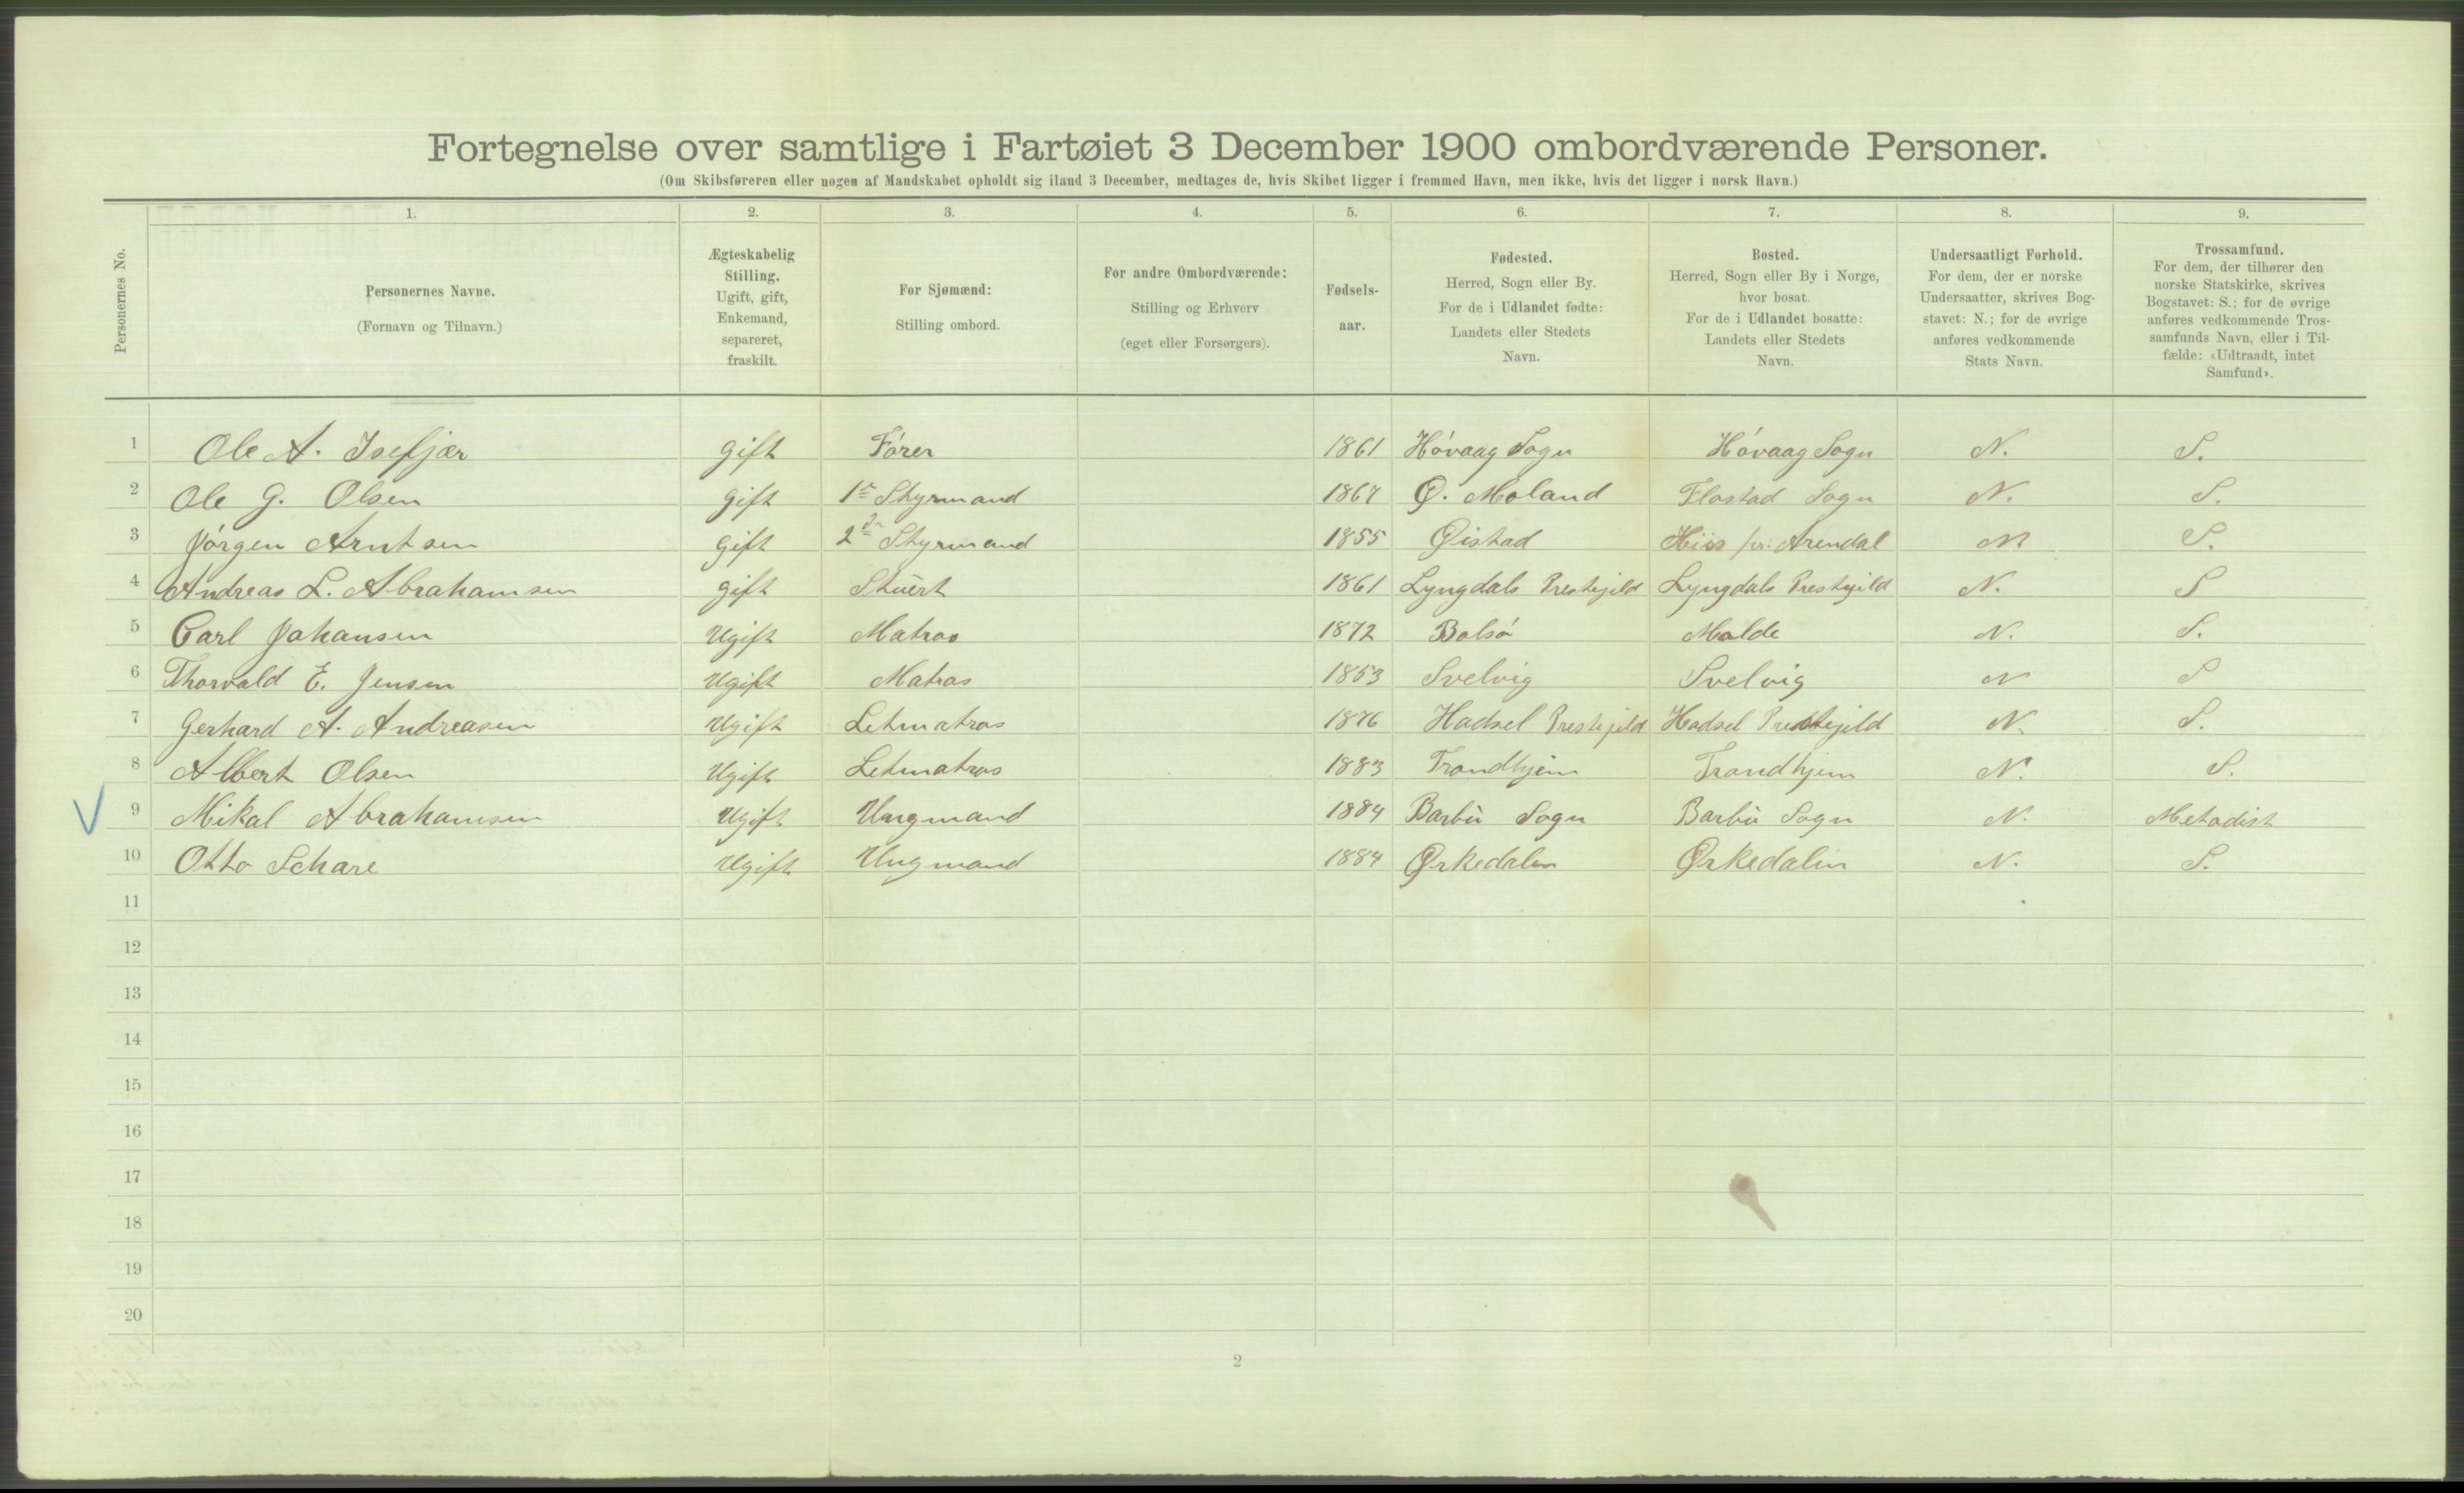 Fortegnelse over samtlige i Fartøiet 3 December 1900 ombordværende Personer.
(Om Skibsføreren eller nogen af Mandskabet opholdt sig iland 3 December, medtages de, hvis Skibet ligger i fremmed Havn, men ikke, hvis det ligger i norsk Havn.)
Personernes No.
1.
Personernes Navne.
(Fornavn og Tilnavn.)
2.
Ægteskabelig
Stilling.
Ugift, gift,
Enkemand,
separeret,
fraskilt.
3.
For Sjømænd:
Stilling ombord.
4.
For andre Ombordværende:
Stilling og Erhverv
(eget eller Forsørgers).
5.
Fødsels-
aar.
6.
Fødested.
Herred, Sogn eller By.
For de i Udlandet fødte:
Landets eller Stedets
Navn.
7.
Bosted.
Herred, Sogn eller By i Norge,
hvor bosat.
For de i Udlandet bosatte:
Landets eller Stedets
Navn.
8.
Undersaatligt Forhold.
For dem, der er norske
Undersaatter, skrives Bog-
stavet: N.; for de øvrige
anføres vedkommende
Stats Navn.
9.
Trossamfund.
For dem, der tilhører den
norske Statskirke, skrives
Bogstavet: S.; for de øvrige
anføres vedkommende Tros-
samfunds Navn, eller i Til-
fælde: «Udtraadt, intet
Samfund».
1 Ole A. Isefjær gift Fører 1861 Høvaag Sogn Høvaag Sogn N. S.
2 Ole G. Olsen gift 1ste Styrmand 1867 Ø. Moland Flostad Sogn N. S.
3 Jørgen Arntsen gift 2den Styrmand 1855 Øistad Hiis pr: Arendal N S.
4 Andreas L. Abrahamsen gift Stuert 1861 Lyngdals Prestegjeld Lyngdals Prestegjeld N. S
5 Carl Johansen Ugift Matros 1872 Bolsø Molde N. S.
6 Thorvald E. Jensen Ugift Matros 1853 Svelvig Svelvig N S
7 Gerhard A. Andreasen Ugift Letmatros 1876 Hadsel Prestegjeld Hadsel Prestegjeld N. S.
8 Albert Olsen Ugift Letmatros 1883 Trondhjem Trondhjem N. S.
V 9 Mikal Abrahamsen Ugift Ungmand 1884 Barbu Sogn Barbu Sogn N. Metodist
10 Otto Schare Ugift Ungmand 1884 Ørkedalen Ørkedalen N. S.
11
12
13
14
15
16
17
18
19
20
2